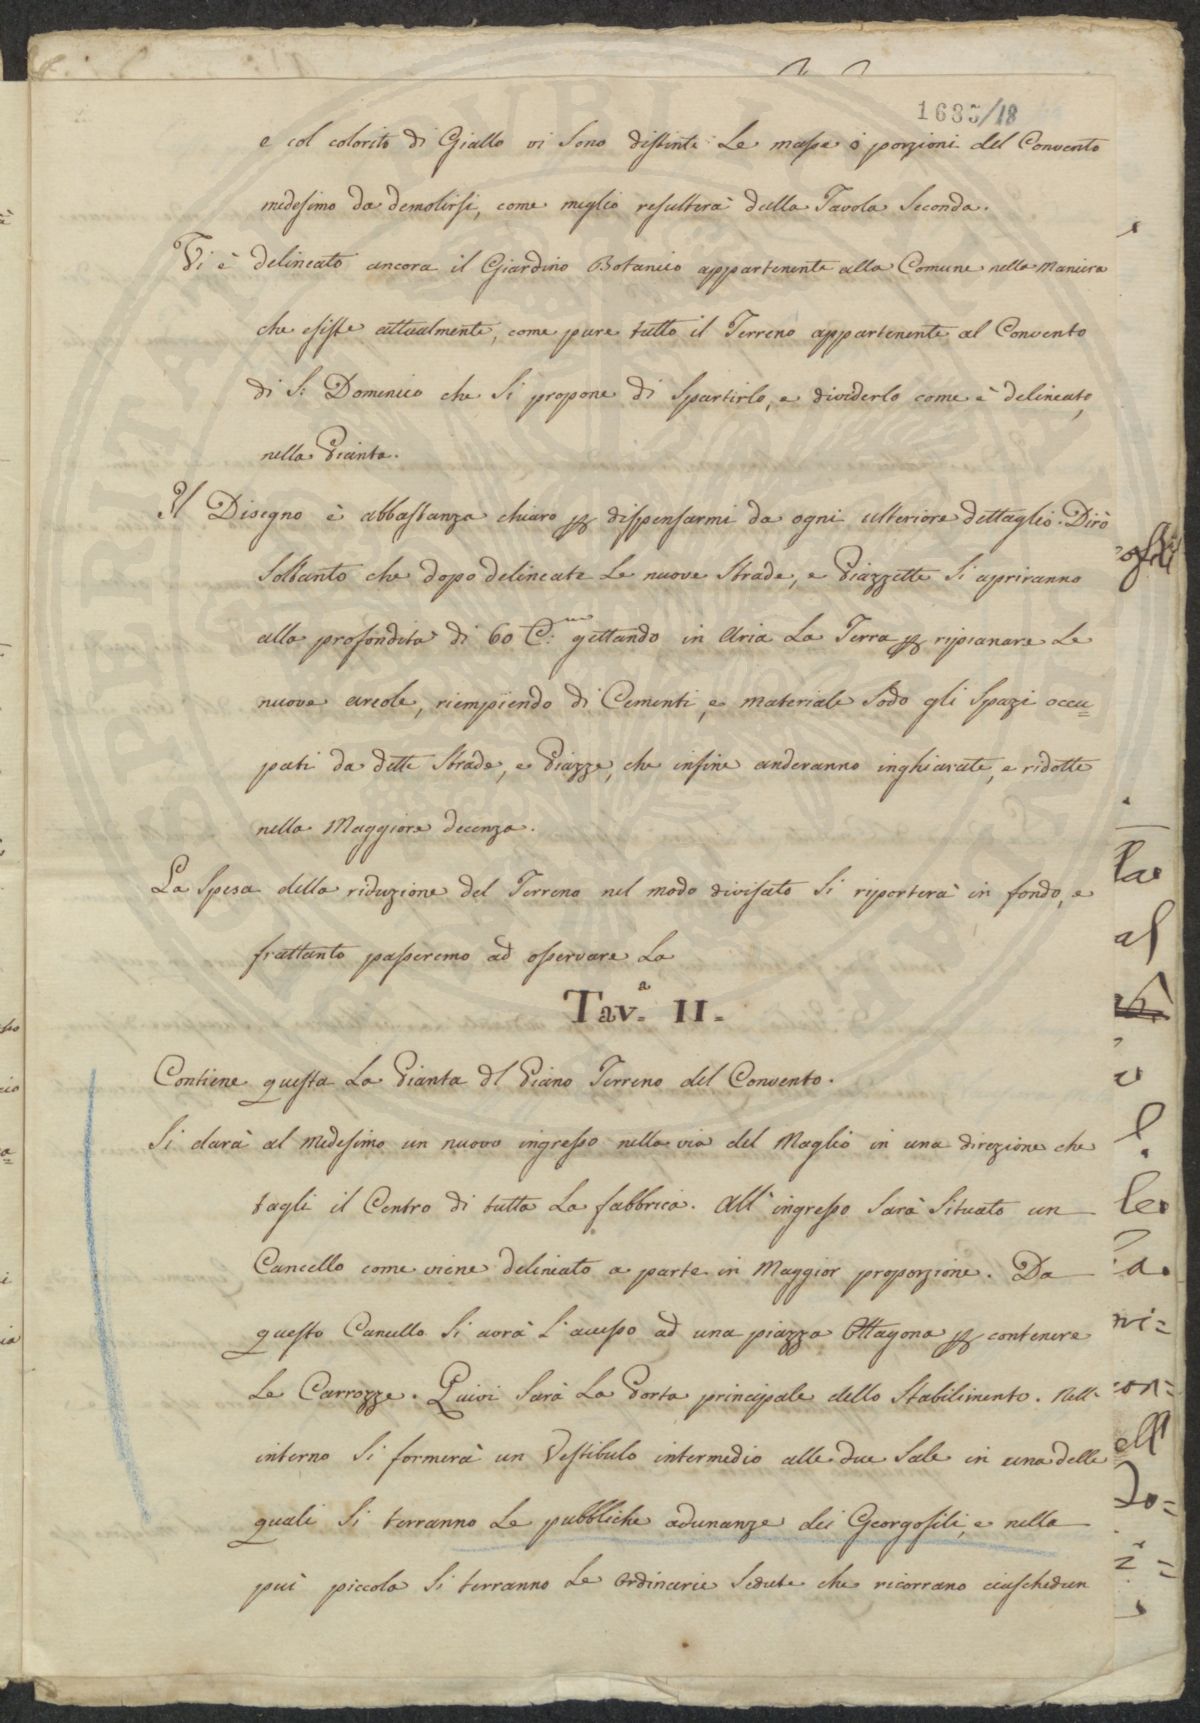 1685/18
e col colorito di Giallo vi sono distinte Le masse o porzioni del Convento
medesimo da demolirsi, come meglio resulterà dalla Tavola Seconda.
Vi è delineato ancora il Giardino Botanico appartenente alla Comune nella Maniera
che esiste attualmente, come pure tutto il Terreno appartenente al Convento
di S: Domenico che Si propone di Spartirlo, e dividerlo come è delineato,
nella Pianta.
Il Disegno è abbastanza chiaro p dispensarmi da ogni ulteriore dettaglio. Dirò
Soltanto che dopo delineate Le nuove Strade, e Piazzette Si apriranno
alla profondità di 60 C:mi gettando in Aria La Terra p ripianare Le
nuove areole, riempiendo di Cementi, e materiale Sodo gli Spazi occu=
pati da dette Strade, e Piazze, che infine anderanno inghiarate, e ridotte
nella Maggiore decenza.
La Spesa della riduzione del Terreno nel modo divisato Si riporterà in fondo, e
frattanto passeremo ad osservare La
Tav.a II.
Contiene questa La Pianta dl Piano Terreno del Convento.
Si darà al medesimo un nuovo ingresso nella via del Maglio in una direzione che
tagli il Centro di tutta La fabbrica. All' ingresso Sarà Situato un
Cancello come viene deliniato a parte in Maggior proporzione. Da
questo Cancello Si avrà L'accesso ad una piazza Ottagona p contenere
Le Carrozze. Quivi Sarà La Porta principale dello Stabilimento. Nell'
interno Si formerà un Vestibulo intermedio alle due Sale in una delle
quali Si terranno Le pubbliche adunanze dei Georgofili, e nella
più piccola Si terranno Le Ordinarie Sedute che ricorrano ciaschedun